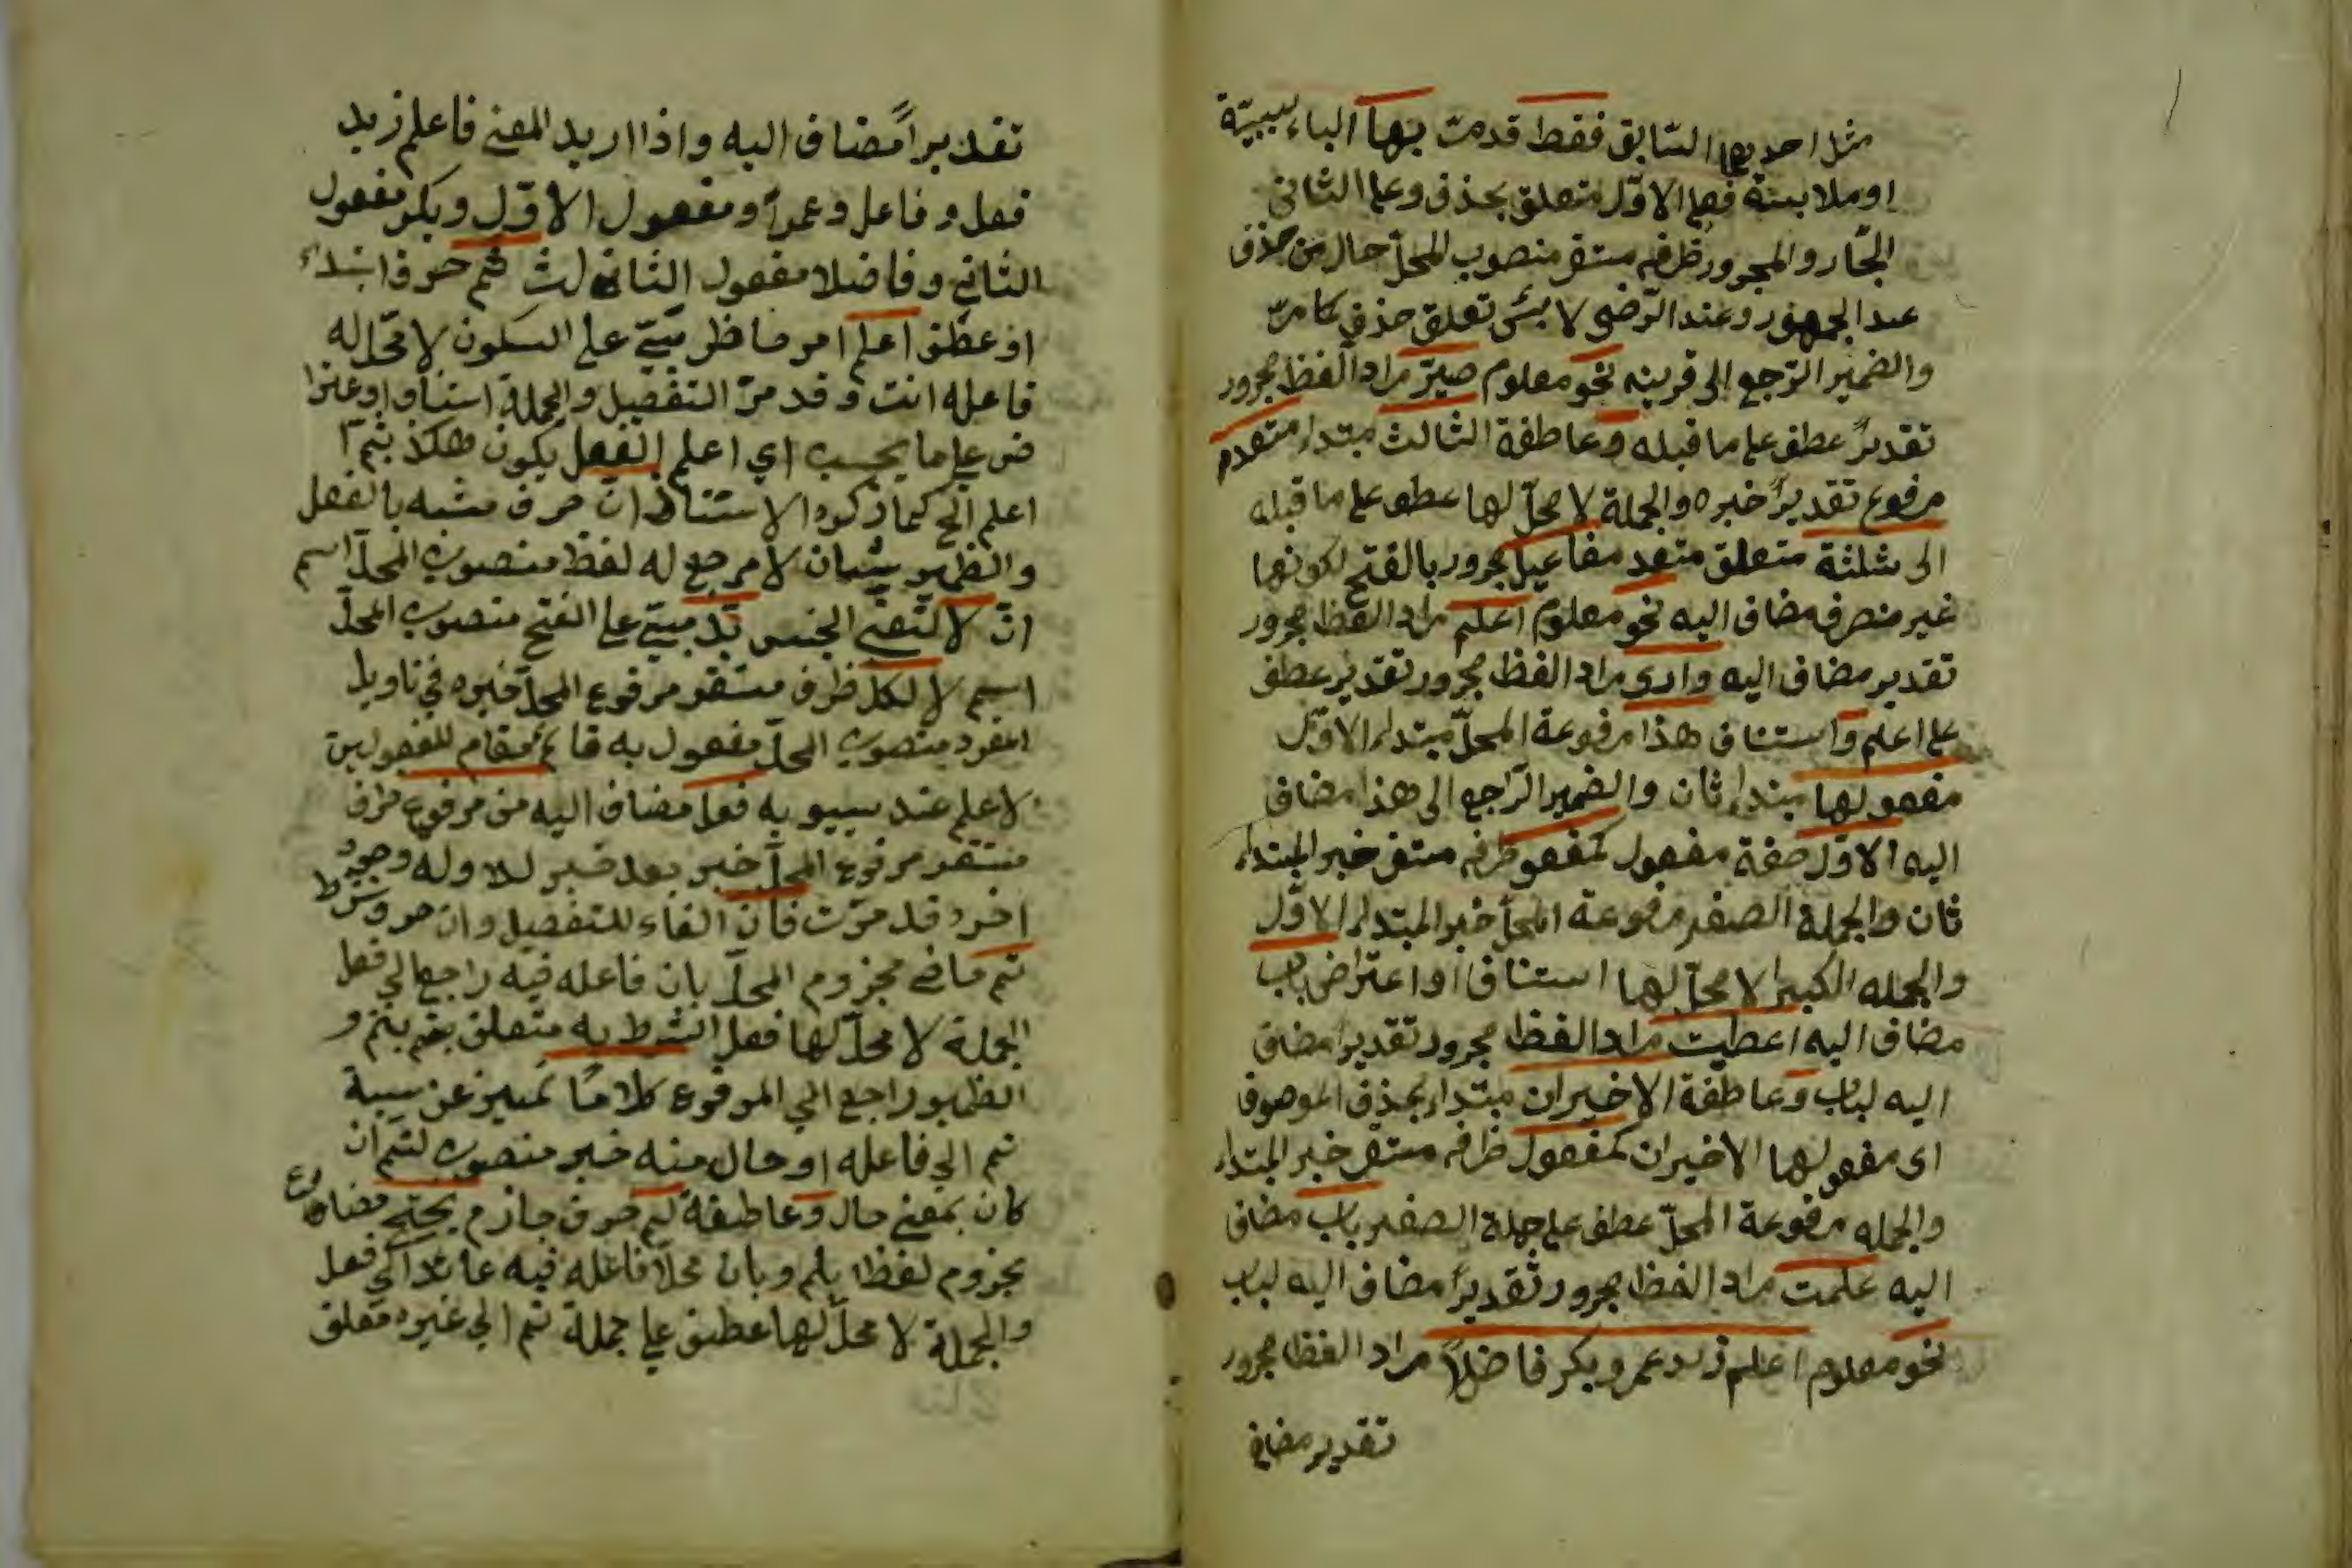 مثل احديهما السّابق فقط قدمت بها الباء لسببيّة
او ملابسة فعلى الاوّل متعلق بحذف وعلى الثانى
الجّار والمجرور ظرف مستقر منصوب المحلّ حال من حذف
عند الجمهور وعند الرّضى لا بشئ تعلق حذف كما مرّ
والضمير الرّجع الى قرينه نحو معلوم صيّر مراد الفظ مجرور
تقديرً عطف على ما قبله وعاطفة الثالث مبتداء متعدم
مرفوع تقديرً خبره والجملة لا محلّ لها عطف على ما قبله
الى ثلثة متعلق متعد مفاعيل مجرور بالفتح لكونها
غير منصرف مضاف اليه نحو معلوم اعلم مراد الفظ مجرور
تقدير مضاف اليه وارى مراد الفظ مجرور تقدير عطف
على اعلم واستناف هذا مرفوعة المحلّ مبتداء الاوّل
مفعولها مبتداء ثان والضمير الرّاجع الى هذا مضاف
اليه الاوّل صفة مفعول كمفعو ظرف مستقر خبر المبتداء
ثان والجملة الصغر مرفوعة المحلّ خبر المبتداء الاوّل
والجمله الكبيرا لا محلّ لها استناف او اعتراض باب
مضاف اليه اعطيت مراد الفظ مجرور تقديرا مضاف
اليه لباب وعاطفة الاخيران مبتداء بحذف الموصوف
اى مفعولها الاخيران كمفعول ظرف مستقر خبر المبتداء
والجمله مرفوعة المحلّ عطف على جملة الصغير باب مضاف
اليه علمت مراد الفظ مجرور تقديرً مضاف اليه لباب
نحو معلوم اعلم زيد عمر وبكر فاضلاً مراد الفظ مجرور
تقدير مضاف
تقديراً مضاف اليه واذا اريد المعنى فاعلم زيد
فعل وفاعل وعمراً ومفعول الاوّل وبكر مفعول
الثاني وفاضلا مفعول الثالث ثم حرف ابتداء
او عطف اعلم امر حاظر مبنيّ على السكون لا محّل له
فاعله انت وقد مرّ التفصيل والجملة استناف او عترا
ض على ما يجسب اي اعلم الفعل يكون هكذا ثم
اعلم الخ كما ذكره الاستناف انّ حرف مشبه بالفعل
والظهير شان لا مرجع له لفظ منصوب المحلّ اسم
انّ لا لنفي الجنس بدّ مبنيّ على الفتح منصوب المحلّ
اسم لا لكل ظرف مستقر مرفوع المحلّ خبره في تاويل
المفرد منصوب المحلّ مفعول به قائم مقام المفعولين
لاعلم عند سيبويه فعل مضاف اليه من مرفوع ظرف
مستقر مرفوع المحلّ خبر بعد خبر للا وله وجود
اخر وقد مرّت فان الفاء للتفصيل وان حرف شرط
تم ماضي مجزوم المحلّ بان فاعله فيه راجع الي فعل
الجملة لا محلّ لها فعل الشرط به متعلق بتم و
الظهير راجع الي المرفوع كلاما تميز عن نسبة
تم الي فاعله او حال منه خبر منصوب لتم ان
كان بمعني حال وعاطفة لم حرف جازم يحتج مضارع
مجزوم لفظا بلم وبان محلّا فاعله فيه عائد الي فعل
والجملة لا محلّ لها عطف على جملة تم الي غيره متعلق